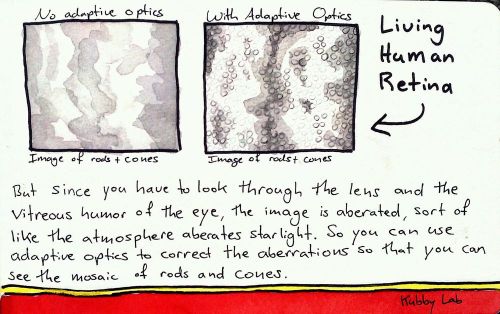 No adaptive optics
With Adaptive Optics
Living
Human
Retina
Image of rods + cones
Image of rods + cones
But since you have to look through the lens and the
Vitreous humor of the eye, the image is aberated, sort of
like the atmosphere aberates starlight. So you can use
adaptive optics to correct the aberrations so that you can
see the mosaic of rods and cones.
Kubby Lab